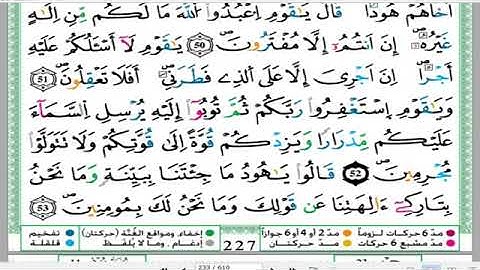 أَخَاهُمْ هُودًاۖ قَالَ يَٰقَوْمِ اِ۟عْبُدُوا۟ اُ۬للَّهَ مَا لَكُم مِّنِ اِلَٰهٍ
غَيْرُهُۥٓۖ إِنَ اَنتُمُۥٓ إِلَّا مُفْتَرُونَۖ 50 يَٰقَوْمِ لَآ أَسْـَٔلُكُمْ عَلَيْهِ
أَجْرًاۖ اِنَ اَجْرِيَ إِلَّا عَلَى اَ۬لذِے فَطَرَنِيَۖ أَفَلَا تَعْقِلُونَۖ 51
وَيَٰقَوْمِ اِ۪سْتَغْفِرُوا۟ رَبَّكُمْ ثُمَّ تُوبُوٓا۟ إِلَيْهِ يُرْسِلِ اِ۬لسَّمَآءَ
عَلَيْكُم مِّدْرَارًا وَيَزِدْكُمْ قُوَّةً اِلَىٰ قُوَّتِكُمْ وَلَا تَتَوَلَّوْا۟
مُجْرِمِينَۖ 52 قَالُوا۟ يَٰهُودُ مَا جِئْتَنَا بِبَيِّنَةٍ وَمَا نَحْنُ
بِتَارِكِےٓ ءَالِهَتِنَا عَن قَوْلِكَ وَمَا نَحْنُ لَكَ بِمُومِنِينَۖ 53
مدّ 6 حركات لزوماً مدّ 2 أو 4 أو 6 جوازاً 227 إخفاء، ومواقع الغُنَّة (حركتان) تفخيم
مدّ مشبع 6 حركات مدّ حركتان إدغام، وما لا يُلفَظ قلقلة
233 / 610